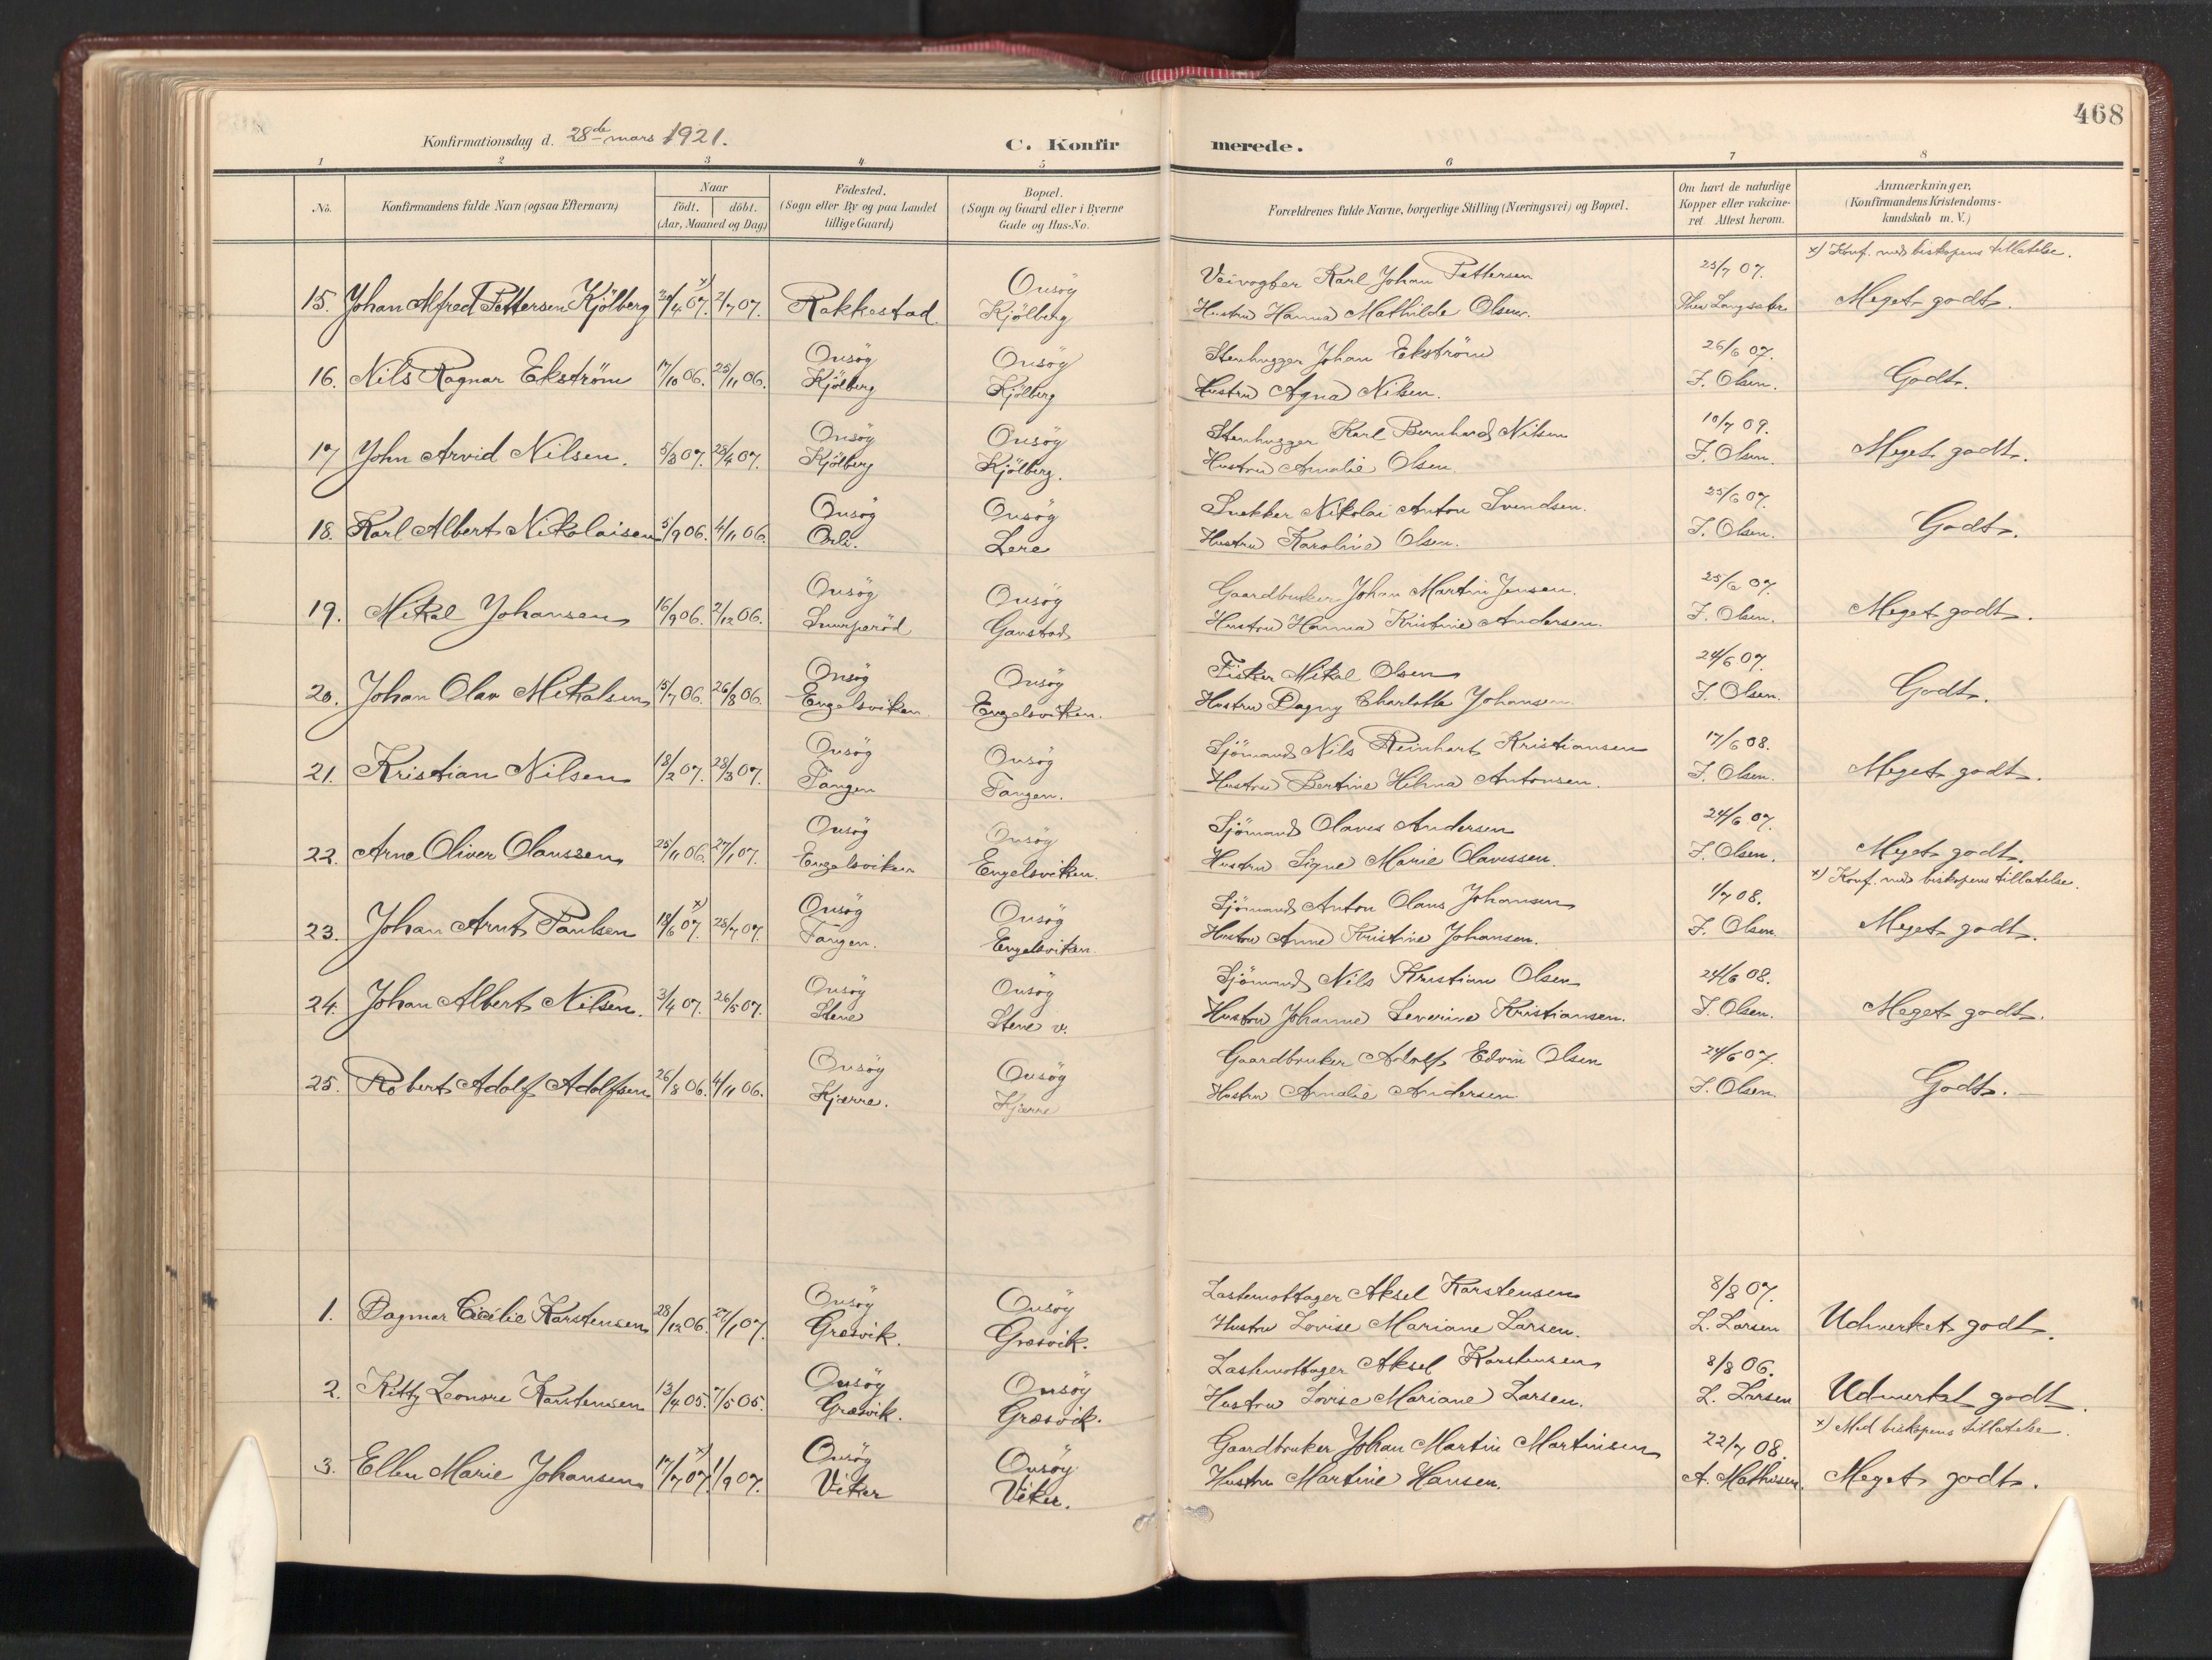 468
Konfirmationsdag d. 28de mars 1921.
C. Konfirmerede.
1 2 3 4 5 6 7 8
No.
Konfirmandens fulde Navn (ogsaa Efternavn)
Naar
födt. döbt.
(Aar, Maaned og Dag)
Födested.
(Sogn eller By og paa Landet
tillige Gaard)
Bopæl.
(Sogn og Gaard eller i Byerne
Gade og Hus-No.
Forældrenes fulde Navne, borgerlige Stilling (Næringsvei) og Bopæl.
Om havt de naturlige
Kopper eller vakcine-
ret. Attest herom.
Anmærkninger.
(Konfirmandens Kristendoms-
kundskab m. V.)
x) Konf. med biskopens tillatelse.
Onsøy Veivogter Karl Johan Pettersen 25/7 07.
15. Johan Alfred Pettersen Kjölberg 22/4 07. x) 2/7 07. Rakkestad Kjölberg Hustru Hanna Mathilde Olsen. Meget godt.
Onsöy Onsöy Stenhugger Johan Ekström 26/6 07.
16. Nils Ragnar Ekström 17/10 06. 25/11 06. Kjölberg Kjölberg Hustru Agna Nilsen. J. Olsen. Godt.
Onsöy Onsöy Stenhugger Karl Bernhard Nilsen 10/7 09.
17 John Arvid Nilsen. 5/3 07. 28/4 07. Kjölberg Kjölberg. Hustru Amalie Olsen J. Olsen. Meget godt.
Onsöy Onsöy Snekker Nikolai Anton Svendsen. 25/6 07.
18. Karl Albert Nikolaisen 5/9 06. 4/11 06. Orli. Lere Hustru Karoline Olsen. J. Olsen. Godt.
Onsöy Onsöy Gaardbruker Johan Martin Jensen. 25/6 07.
19. Mikal Johansen 16/9 06. 2/12 06. Smurperöd Gaustad Hustru Hanna Kristine Andersen. J. Olsen. Meget godt.
Onsöy Onsöy Fisker Mikal Olsen 24/6 07.
20. Johan Olav Mikalsen 15/7 06. 26/8 06. Engelsviken Engelsviken. Hustru Dagny Charlotte Johansen. J. Olsen. Godt.
Onsöy Onsöy Sjömand Nils Reinhart Kristiansen 17/6 08.
21. Kristian Nilsen 18/2 07. 28/3 07. Tangen Tangen. Hustru Bertine Hilma Antonsen. J. Olsen. Meget godt.
Onsöy Onsöy Sjömand Olaves Andersen 24/6 07.
22. Arne Oliver Olaussen 25/11 06. 27/1 07. Engelsviken Engelsviken. Hustru Signe Marie Olavessen. J. Olsen. Meget godt.
x) Konf. med biskopens tillatelse.
Onsöy Onsöy Sjömand Anton Olaus Johansen 1/7 08.
23. Johan Arnt Paulsen 18/6 07. x) 28/7 07. Tangen. Engelsviken. Hustru Anne Kristine Johansen. J. Olsen Meget godt.
Onsöy Onsöy Sjömand Nils Kristian Olsen 24/6 08.
24. Johan Albert Nilsen. 3/4 07. 26/5 07. Stene Stene v. Hustru Johanne Severine Kristiansen. J. Olsen. Meget godt.
Onsöy Onsöy Gaardbruker Adolf Edvin Olsen 24/6 07.
25. Robert Adolf Adolfsen 26/8 06. 4/11 06. Kjærre. Kjærre Hustru Amalie Andersen J. Olsen. Godt.
Onsöy Onsöy Lastemottager Aksel Karstensen 8/8 07.
1. Dagmar Cicélie Karstensen 28/12 06. 27/1 07. Græsvik. Græsvik. Hustru Lovise Mariane Larsen. L. Larsen Udmerket godt.
Onsöy Onsöy Lastemottager Aksel Karstensen 8/8 06.
2. Kitty Leonore Karstensen 13/4 05. 7/5 05. Græsvik. Græsvik. Hustru Lovise Mariane Larsen. L. Larsen Udmerket godt.
x) Med biskopens tillatelse.
Onsöy Onsöy Gaardbruker Johan Martin Martinsen 22/7 08.
3. Ellen Marie Johansen 17/7 07. x) 1/9 07. Viker Viker. Hustru Martine Hansen. A. Mathisen. Meget godt.